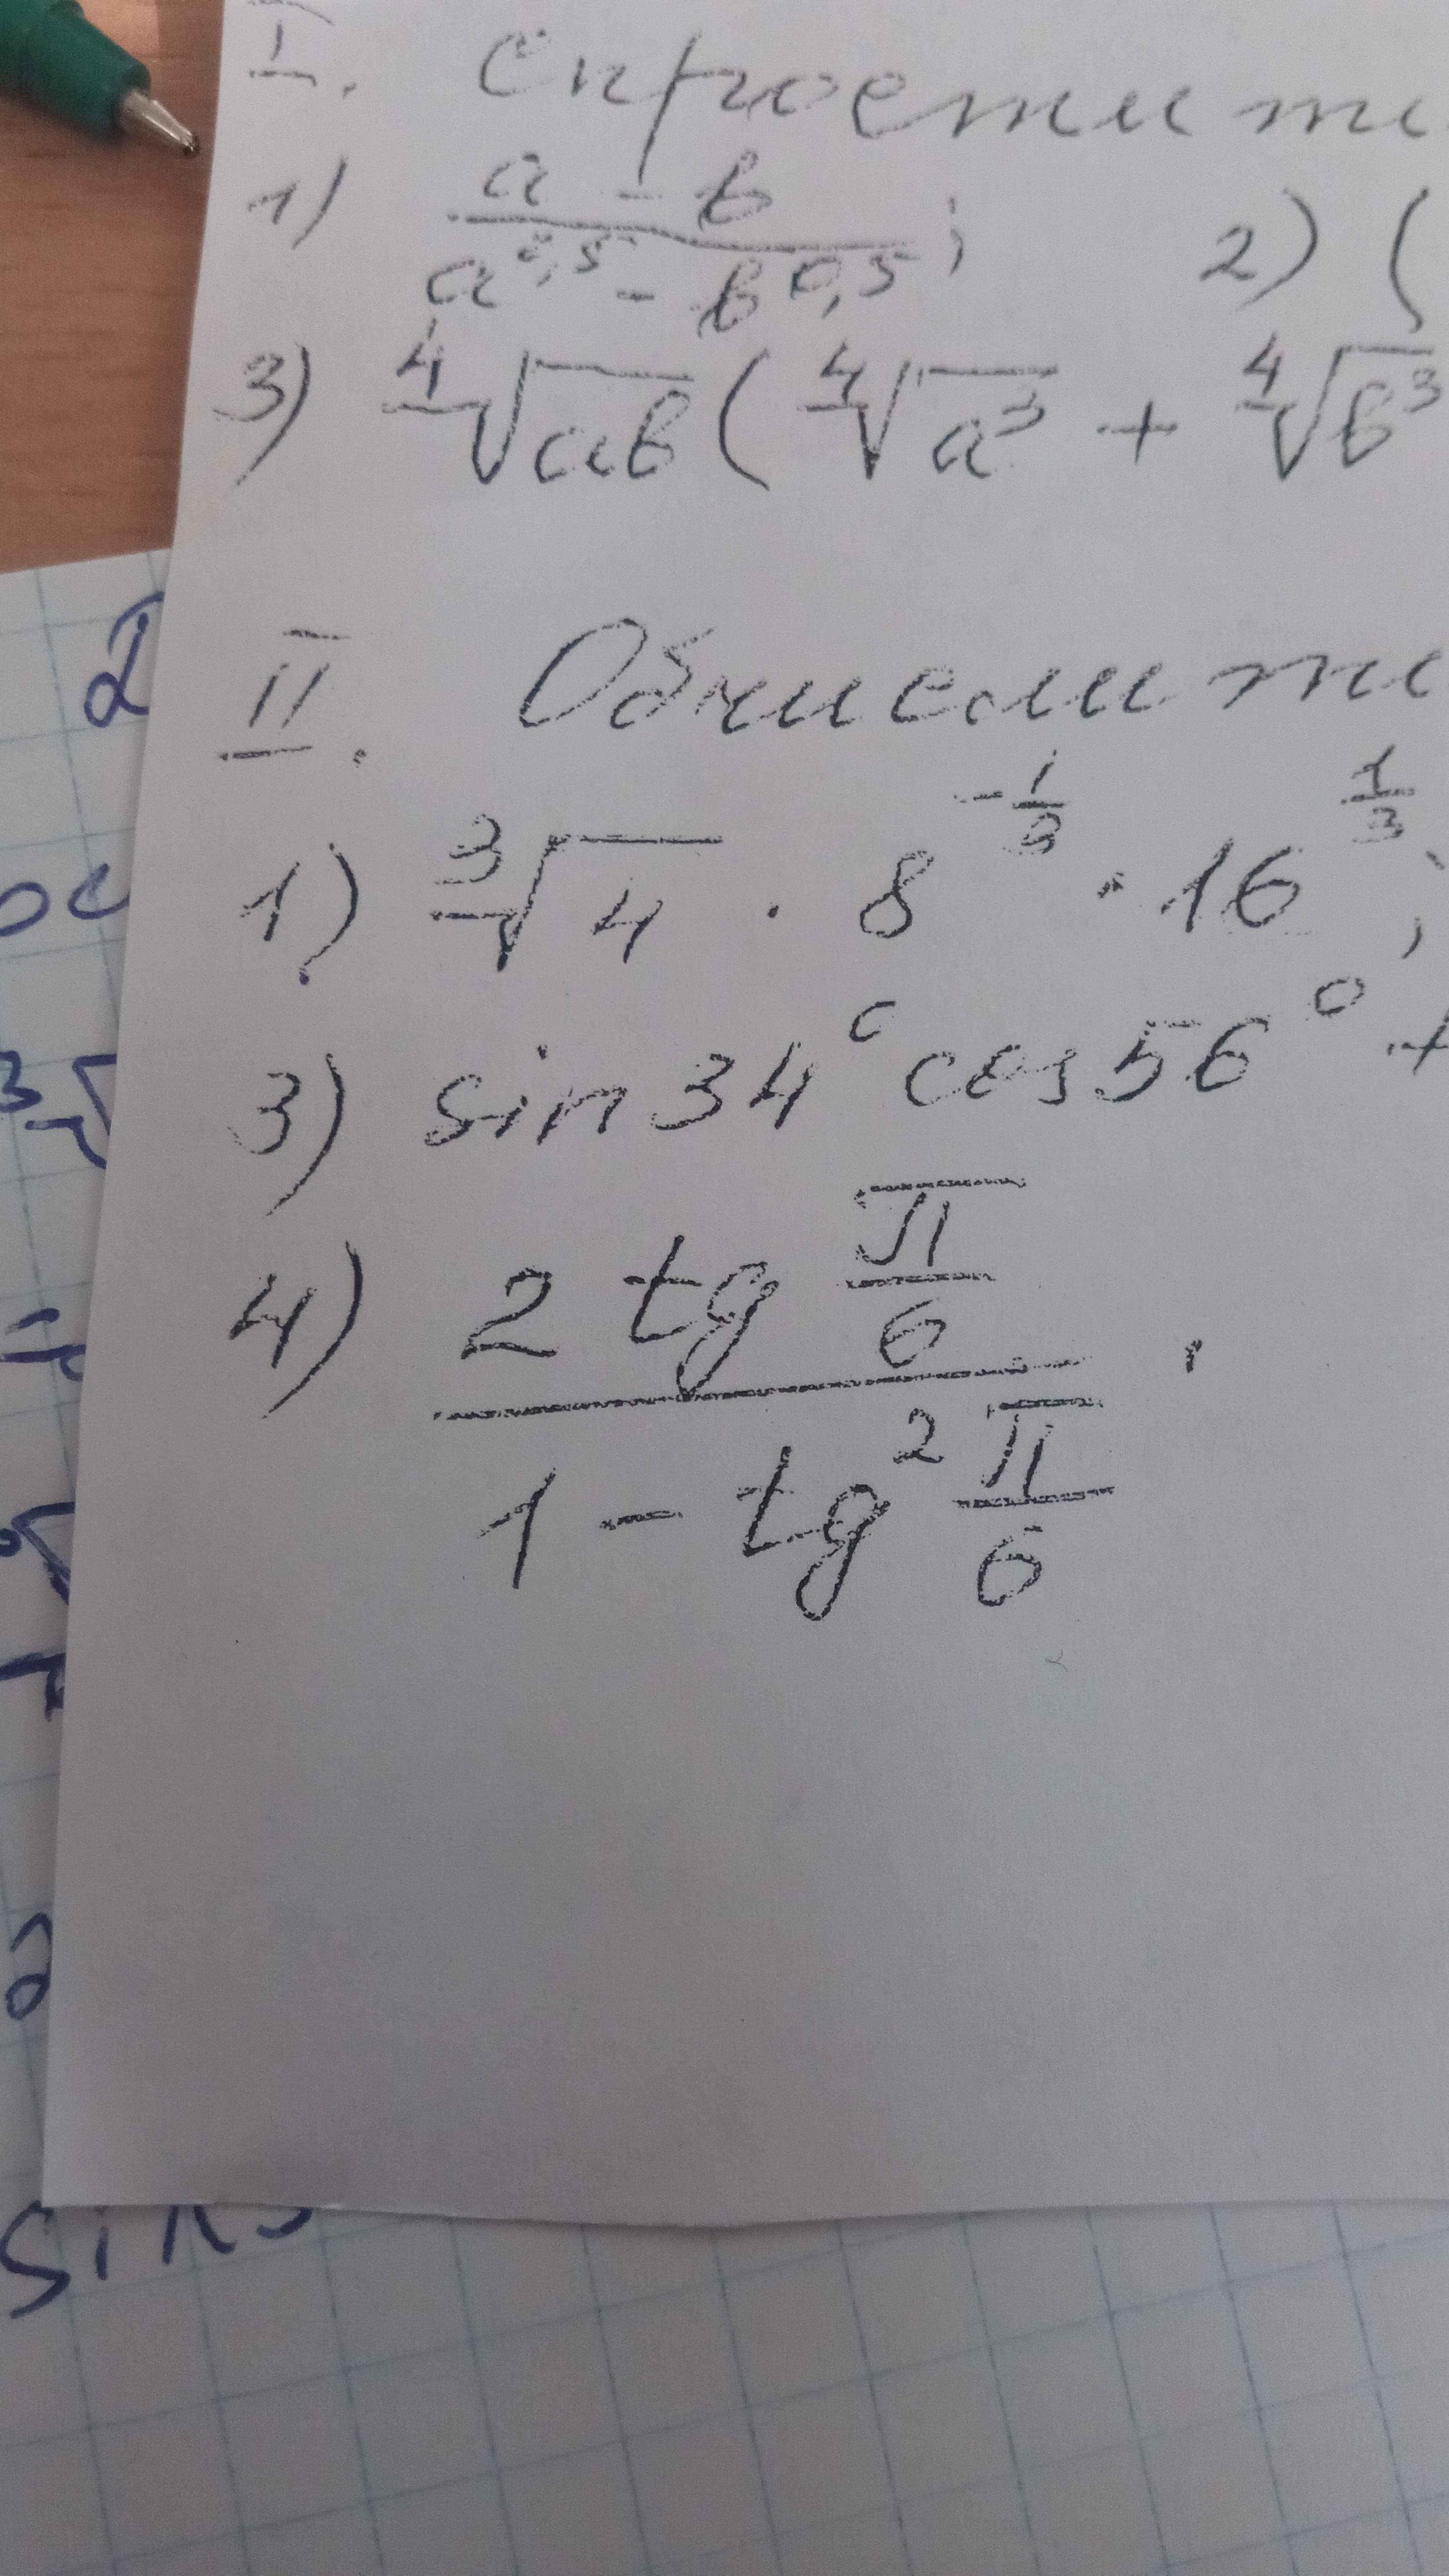 I. Спростити
1) (a - b)/(a^0,5 - b^0,5); 2) (
3) ⁴√ab (⁴√a³ + ⁴√b³
II. Обчислити
1) ³√4 · 8^(-1/3) · 16^(1/3);
3) sin 34° cos 56° +
4) (2 tg π/6)/(1 - tg² π/6).
sin